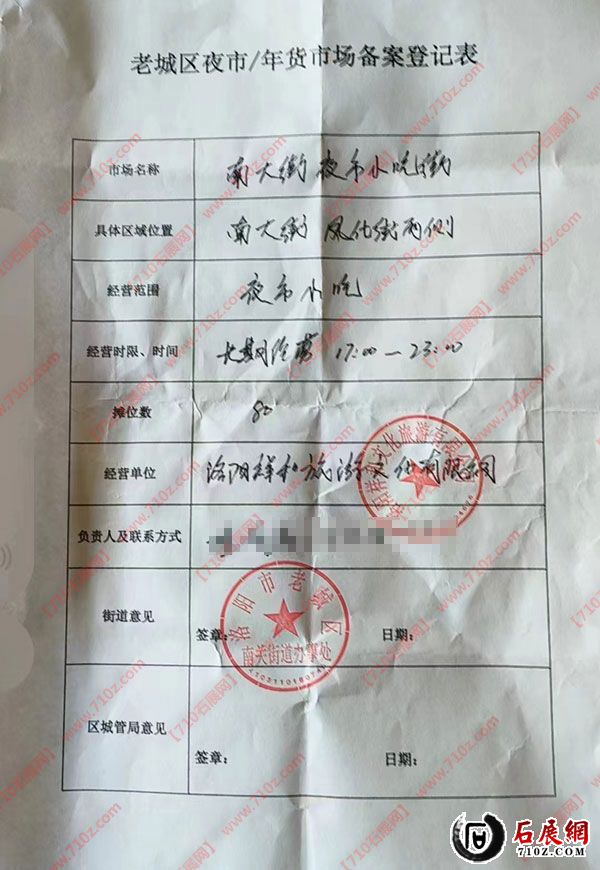 老城区夜市/年货市场备案登记表
市场名称 南大街夜市小吃街
具体区域位置 南大街 风化街两侧
经营范围 夜市小吃
经营时限、时间 长期经营 17:00—23:00
摊位数 80
经营单位 洛阳祥和旅游文化有限公司
文化旅游有限
负责人及联系方式
洛阳市老城区
南关街道办事处
街道意见 签章： 日期：
区城管局意见 签章： 日期：
【710石展网】
www.710z.com
石展網
710Z.COM